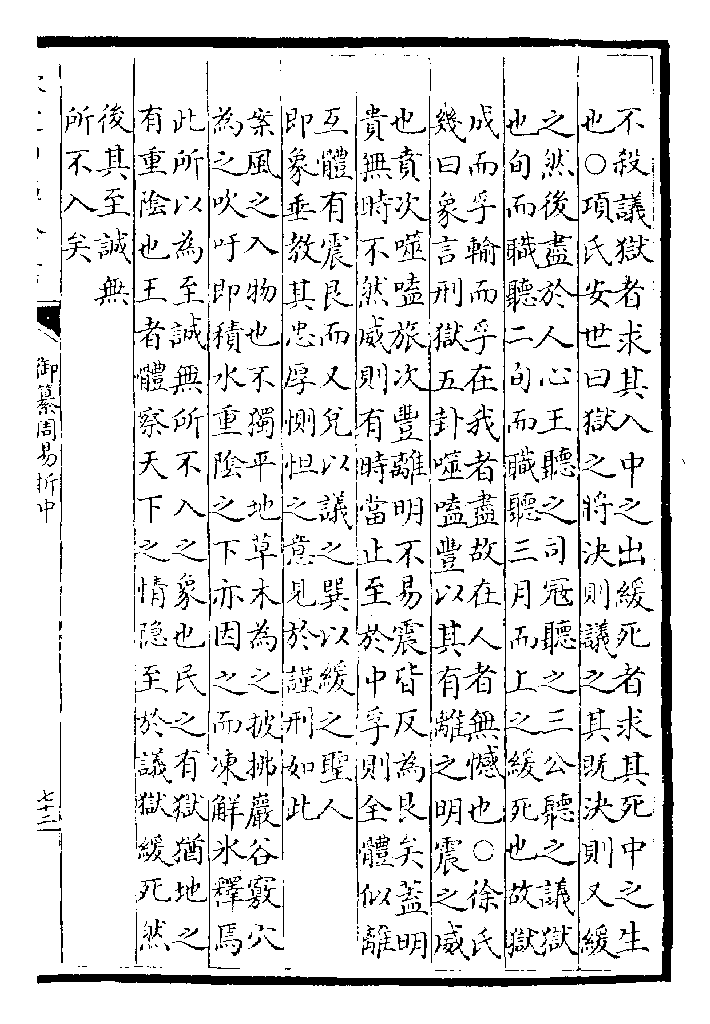 不殺議獄者求其入中之出緩死者求其死中之生
也○項氏安世曰獄之將決則議之其既決則又緩
之然後盡於人心王聽之司冦聽之三公聽之議獄
也旬而職聽二旬而職聽三月而上之緩死也故獄
成而孚輸而孚在我者盡故在人者無憾也○徐氏
幾曰象言刑獄五卦噬嗑豐以其有離之明震之威
也賁次噬嗑旅次豐離明不易震皆反為艮矣蓋明
貴無時不然威則有時當止至於中孚則全體似離
互體有震艮而又兌以議之巽以緩之聖人
即象垂教其忠厚惻怛之意見於謹刑如此
案風之入物也不獨平地草木為之披拂巖谷竅穴
為之吹吁即積水重陰之下亦因之而凍解冰釋焉
此所以為至誠無所不入之象也民之有獄猶地之
有重陰也王者體察天下之情隱至於議獄緩死然
後其至誠無
所不入矣
御纂周易折中
七十三